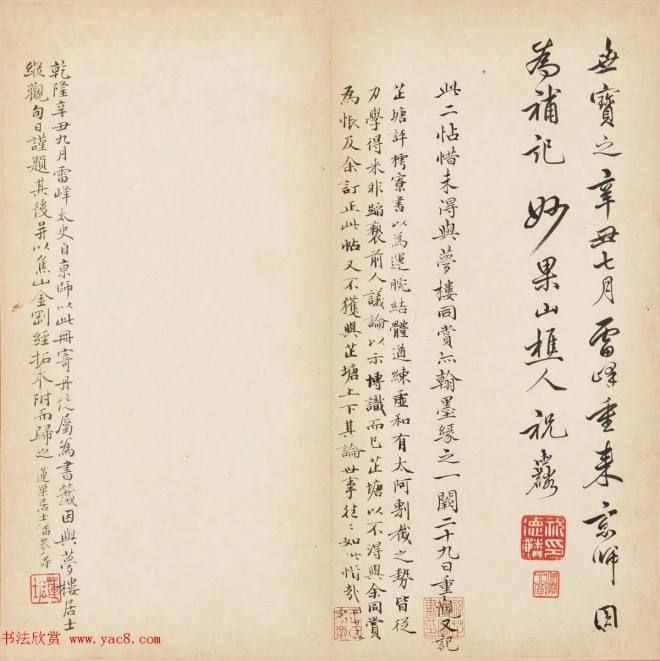 世寶之辛丑七月雷峰重来京師因
為補記 妙果山樵人祝
此二帖惜未得與夢樓同賞亦翰墨緣之一闕二十九日重觀又記
芷塘評樗寮書以為運腕結體遒練虛和有太阿剸截之勢皆從
力學得來非蹈襲前人議論以示博識而已芷塘以不得與余同賞
為悵及余訂正此帖又不獲與芷塘上下其論世事往々如此惜哉
乾隆辛丑九月雷峰太史自京師以此冊寄丹徒屬為書籤因與夢樓居士
縱觀旬日謹題其後并以焦山金剛經拓本附而歸之 蓮巢居士潘恭壽
书法欣赏 www.yac8.com